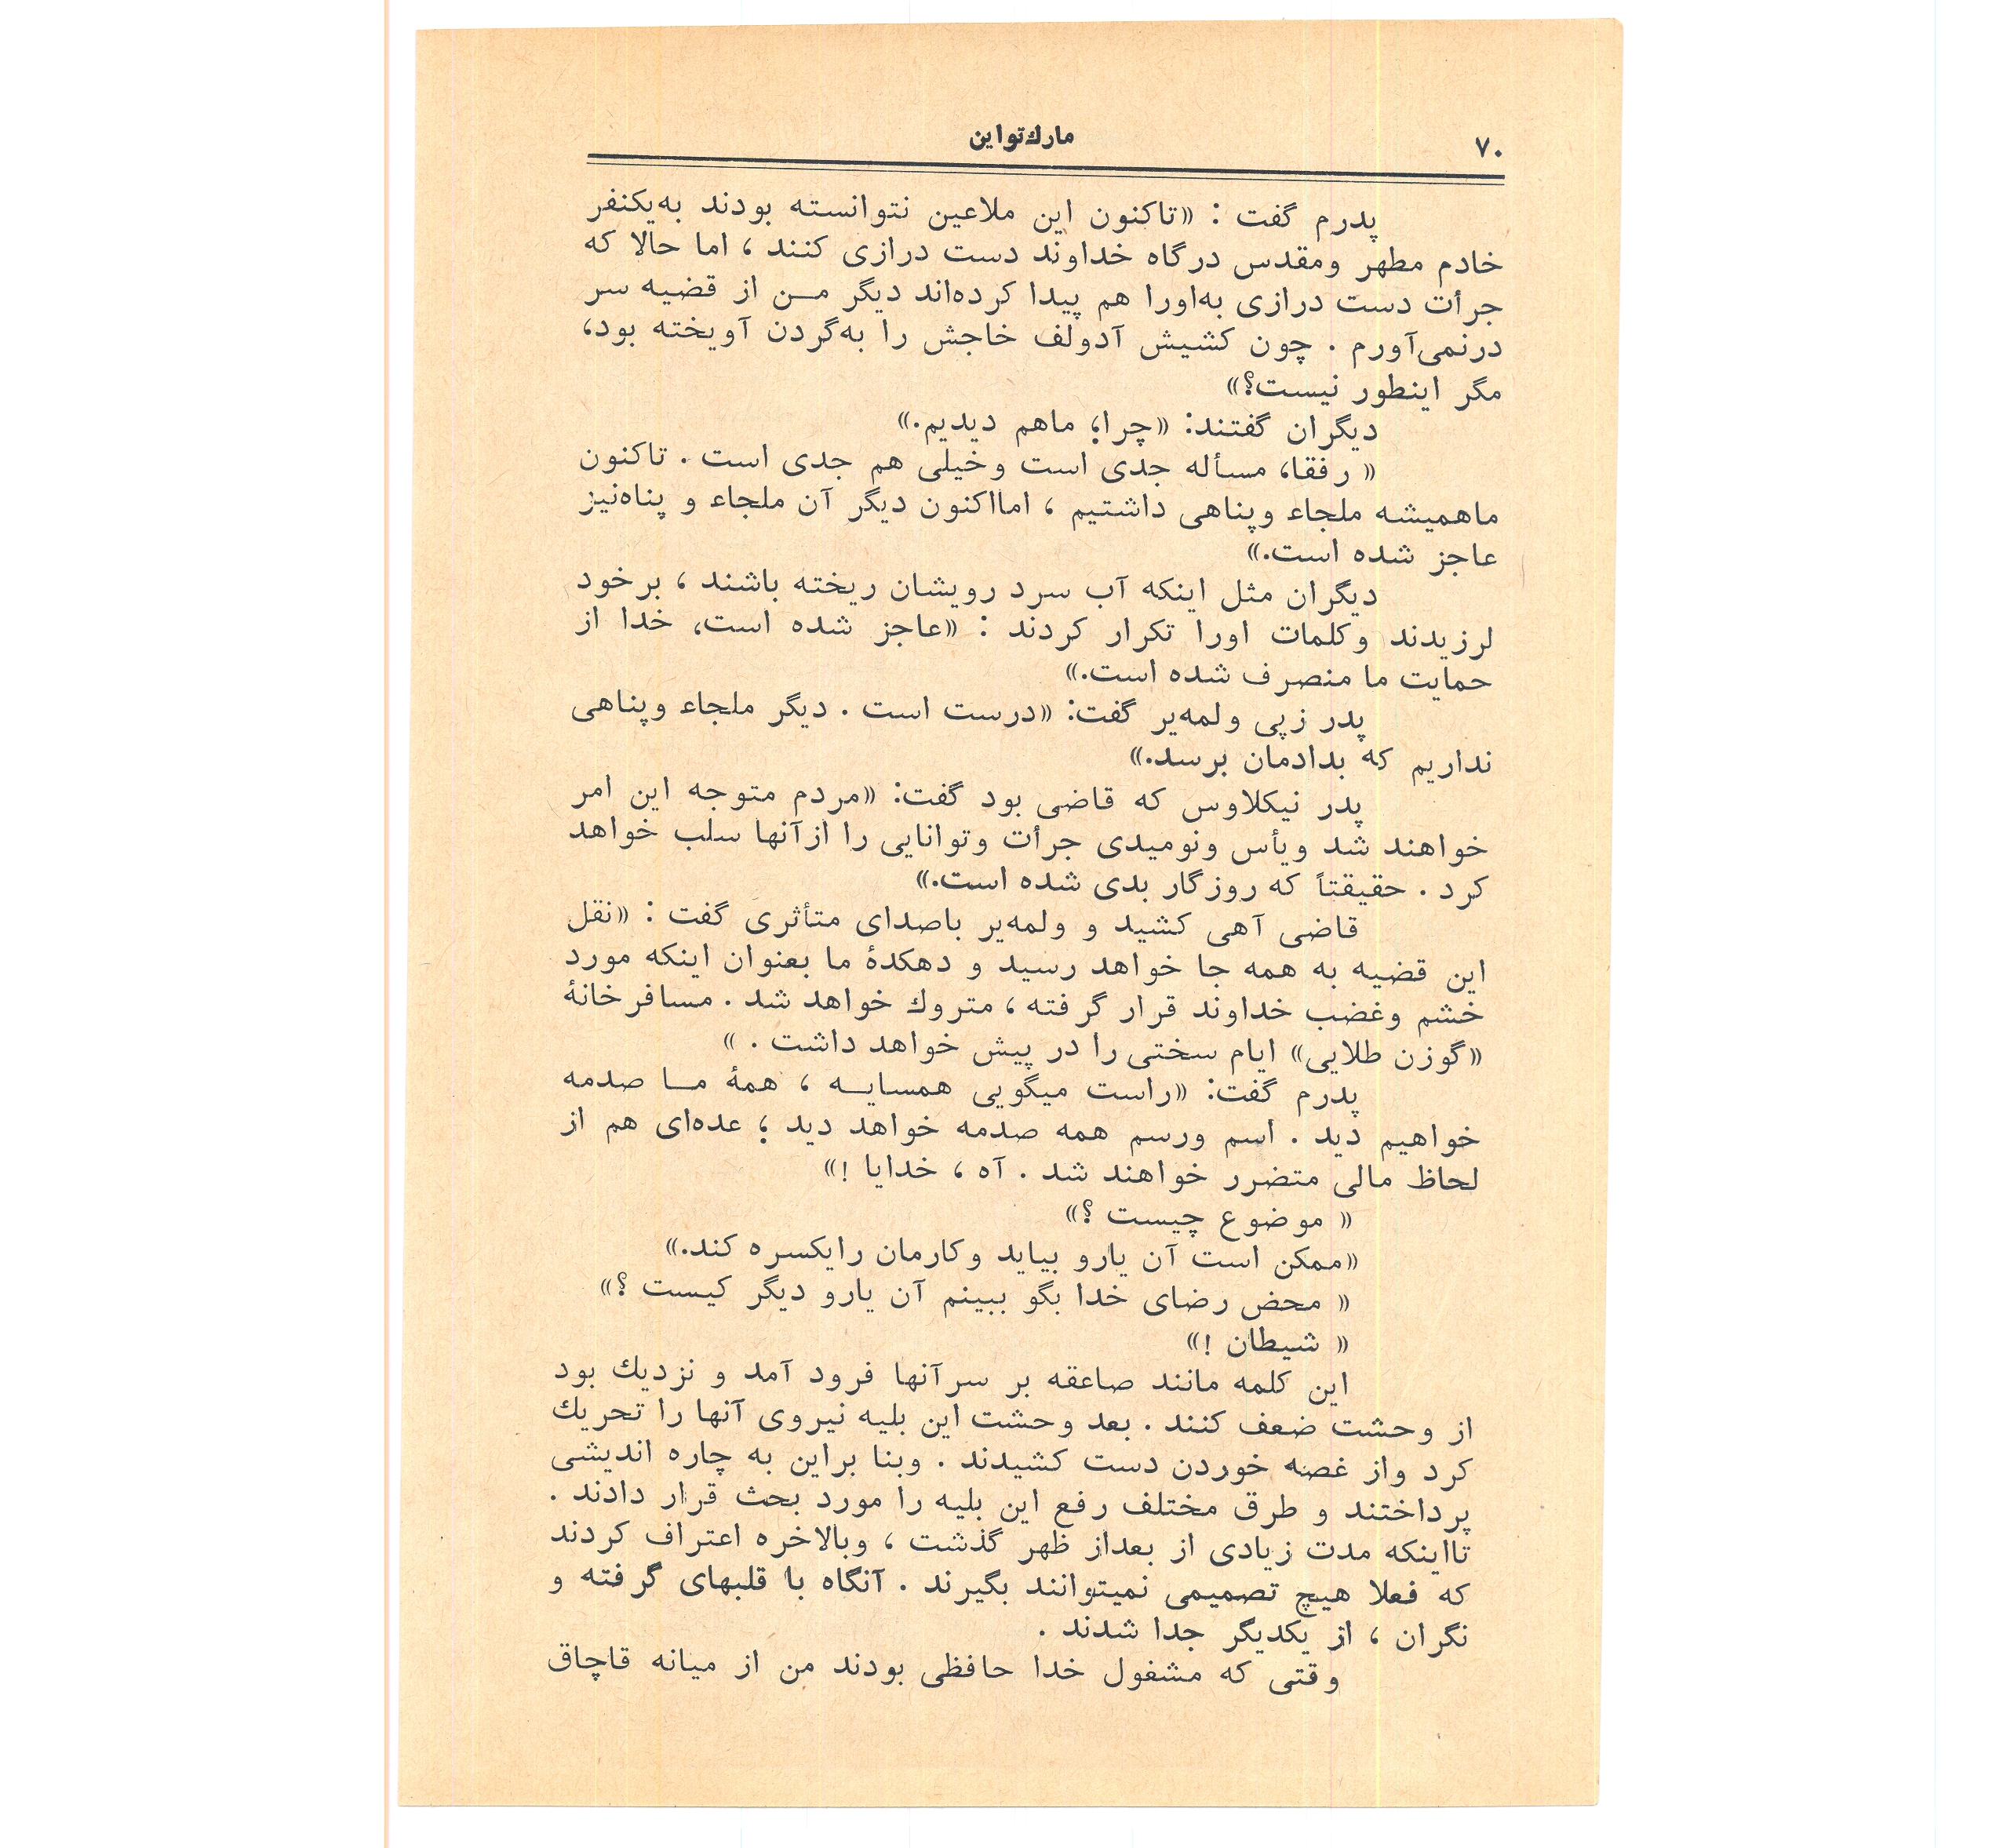 ۷۰
مارك‌تواین
پدرم گفت : «تاکنون این ملاعین نتوانسته بودند به‌یکنفر
خادم مطهر ومقدس درگاه خداوند دست درازی کنند ، اما حالا که
جرأت دست درازی به‌اورا هم پیدا کرده‌اند دیگر مـن از قضیه سر
درنمی‌آورم . چون کشیش آدولف خاجش را به‌گردن آویخته بود،
مگر اینطور نیست؟»
دیگران گفتند: «چرا؛ ماهم دیدیم.»
« رفقا، مسأله جدی است وخیلی هم جدی است . تاکنون
ماهمیشه ملجاء وپناهی داشتیم ، امااکنون دیگر آن ملجاء و پناه‌نیز
عاجز شده است.»
دیگران مثل اینکه آب سرد رویشان ریخته باشند ، برخود
لرزیدند وکلمات اورا تکرار کردند : «عاجز شده است، خدا از
حمایت ما منصرف شده است.»
پدر زپی ولمه‌یر گفت: «درست است . دیگر ملجاء وپناهی
نداریم که بدادمان برسد.»
پدر نیکلاوس که قاضی بود گفت: «مردم متوجه این امر
خواهند شد ویأس ونومیدی جرأت وتوانایی را ازآنها سلب خواهد
کرد . حقیقتاً که روزگار بدی شده است.»
قاضی آهی کشید و ولمه‌یر باصدای متأثری گفت : «نقل
این قضیه به همه جا خواهد رسید و دهکدهٔ ما بعنوان اینکه مورد
خشم وغضب خداوند قرار گرفته ، متروك خواهد شد . مسافرخانهٔ
«گوزن طلایی» ایام سختی را در پیش خواهد داشت . »
پدرم گفت: «راست میگویی همسایـه ، همهٔ مـا صدمه
خواهیم دید . اسم ورسم همه صدمه خواهد دید ؛ عده‌ای هم از
لحاظ مالی متضرر خواهند شد . آه ، خدایا !»
« موضوع چیست ؟»
«ممکن است آن یارو بیاید وکارمان رایکسره کند.»
« محض رضای خدا بگو ببینم آن یارو دیگر کیست ؟»
« شیطان !»
این کلمه مانند صاعقه بر سرآنها فرود آمد و نزدیك بود
از وحشت ضعف کنند . بعد وحشت این بلیه نیروی آنها را تحریك
کرد واز غصه خوردن دست کشیدند . وبنا براین به چاره اندیشی
پرداختند و طرق مختلف رفع این بلیه را مورد بحث قرار دادند .
تااینکه مدت زیادی از بعداز ظهر گذشت ، وبالاخره اعتراف کردند
که فعلا هیچ تصمیمی نمیتوانند بگیرند . آنگاه با قلبهای گرفته و
نگران ، از یکدیگر جدا شدند .
وقتی که مشغول خدا حافظی بودند من از میانه قاچاق